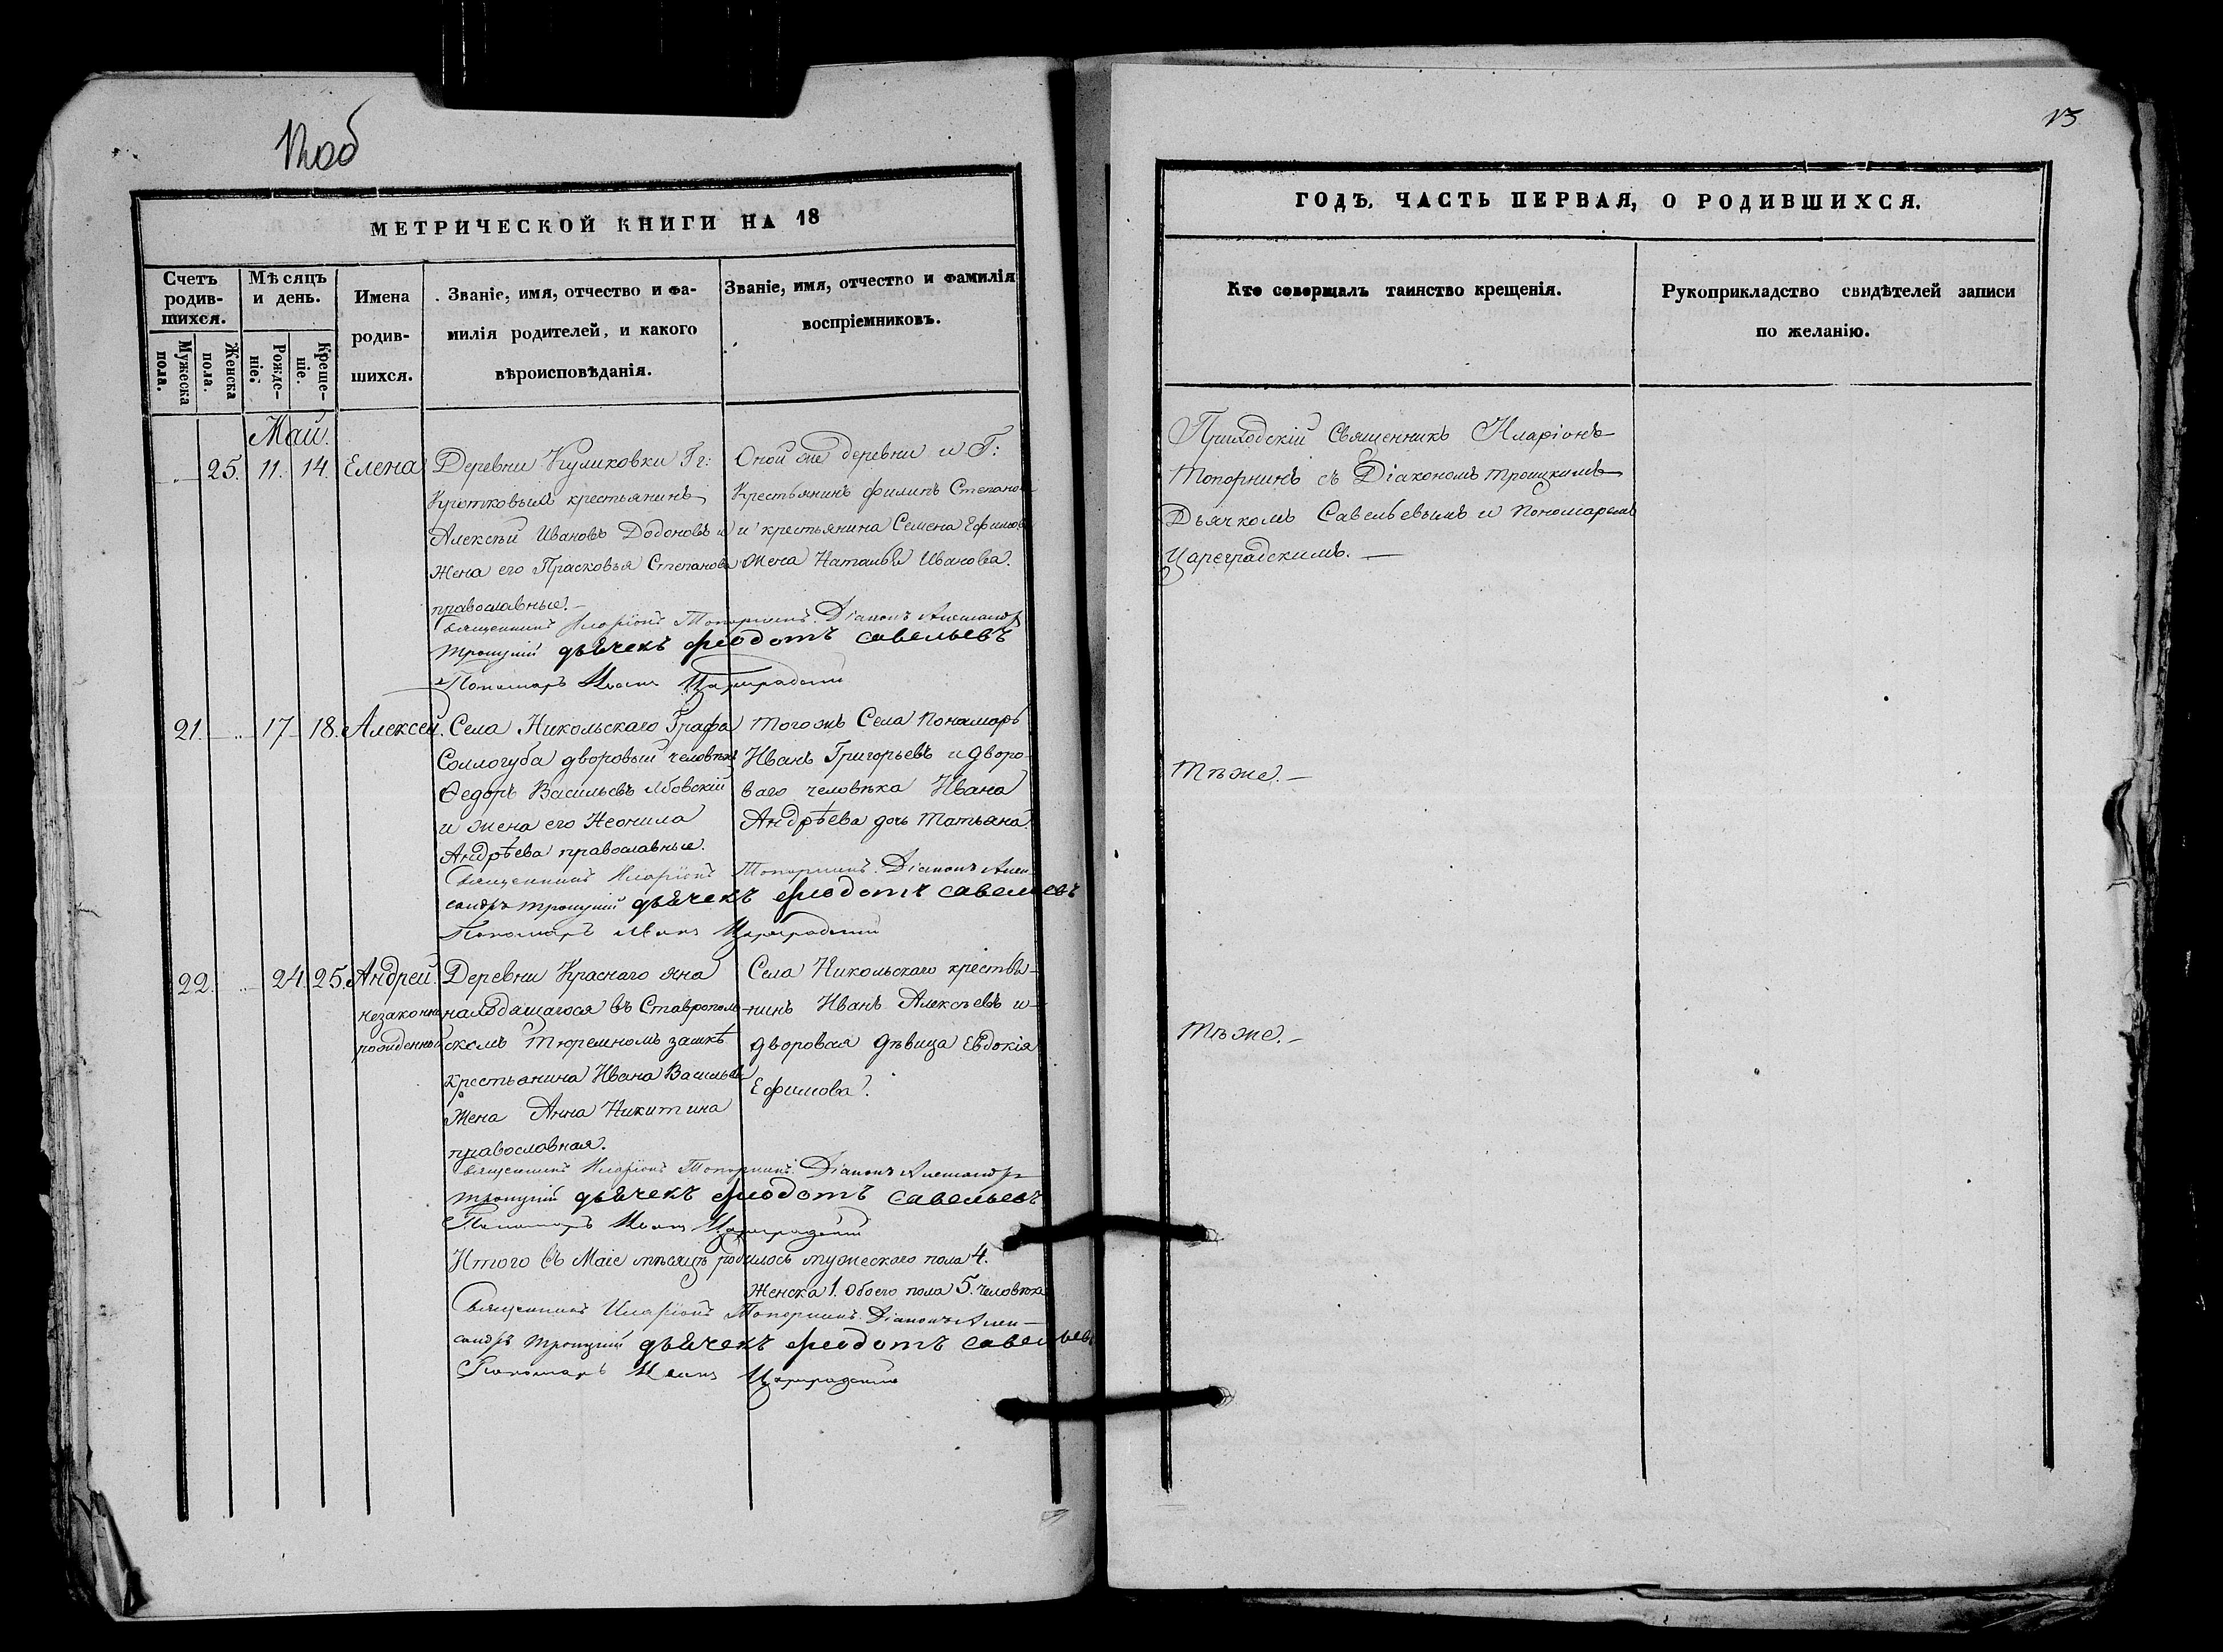 12об
МЕТРИЧЕСКОЙ КНИГИ НА 18
Счетъ родив-шихся.
Мѣсяцъ и день.
Имена родив-шихся.
Званіе, имя, отчество и фа-
милія родителей, и какого
вѣроисповѣданія.
Званіе, имя, отчество и фамилія
воспріемниковъ.
Мужеска пола.
Женска пола.
Рожде-ніе.
Креще-ніе.
Май.
25. 11. 14. Елена
Деревни Куликовки Гг:
Кротковыхъ крестьянинъ
Алексѣй Ивановъ Додоновъ и
жена его Прасковья Степанова
православные.
Оной же деревни и Г:
Крестьянинъ Филипъ Степановъ
и крестьянина Семена Ефимова
жена Наталья Иванова.
Священникъ Иларіонъ Топорнинъ. Діаконъ Александръ
Троицкій дьячекъ Феодотъ Савельевъ
Пономарь Иванъ Цареградскій
21. 17. 18. Алексей.
Села Никольскаго Графа
Соллогуба дворовый человѣкъ
Ѳедоръ Васильевъ
и жена его Неонила
Андрѣева православные.
Тогожъ Села Пономарь
Иванъ Григорьевъ и дворо-
ваго человѣка Ивана
Андрѣева дочь Татьяна.
Священникъ Иларіонъ Топорнинъ. Діаконъ Алек-
сандръ Троицкій дьячекъ Феодотъ Савельевъ
Пономарь Иванъ Цареградскій
22. 24. 25. Андрей
незаконно
рожденной
Деревни Краснаго яна
находящагося въ Ставрополь-
скомъ Тюремномъ замкѣ
крестьянина Ивана Васильева
жена Анна Никитина
православная.
Села Никольскаго крестья-
нинъ Иванъ Алексѣевъ и
дворовая дѣвица Евдокія
Ефимова.
Священникъ Иларіонъ Топорнинъ. Діаконъ Александръ
Троицкій дьячекъ Феодотъ Савельевъ
Пономарь Иванъ Цареградскій
Итого въ Маіе мѣсяцѣ родилось мужескаго пола 4.
Женска 1. Обоего пола 5. человѣкъ
Священникъ Иларіонъ Топорнинъ. Діаконъ Алек-
сандръ Троицкій дьячекъ Феодотъ Савельевъ
Пономарь Иванъ Цареградскій
13
ГОДЪ, ЧАСТЬ ПЕРВАЯ, О РОДИВШИХСЯ.
Кто совершалъ таинство крещенія.
Рукоприкладство свидѣтелей записи
по желанію.
Приходскій Священникъ Иларіонъ
Топорнинъ съ Діакономъ Троицкимъ
Дьячкомъ Савельевымъ и Пономаремъ
Цареградскимъ.
Тѣже.
Тѣже.